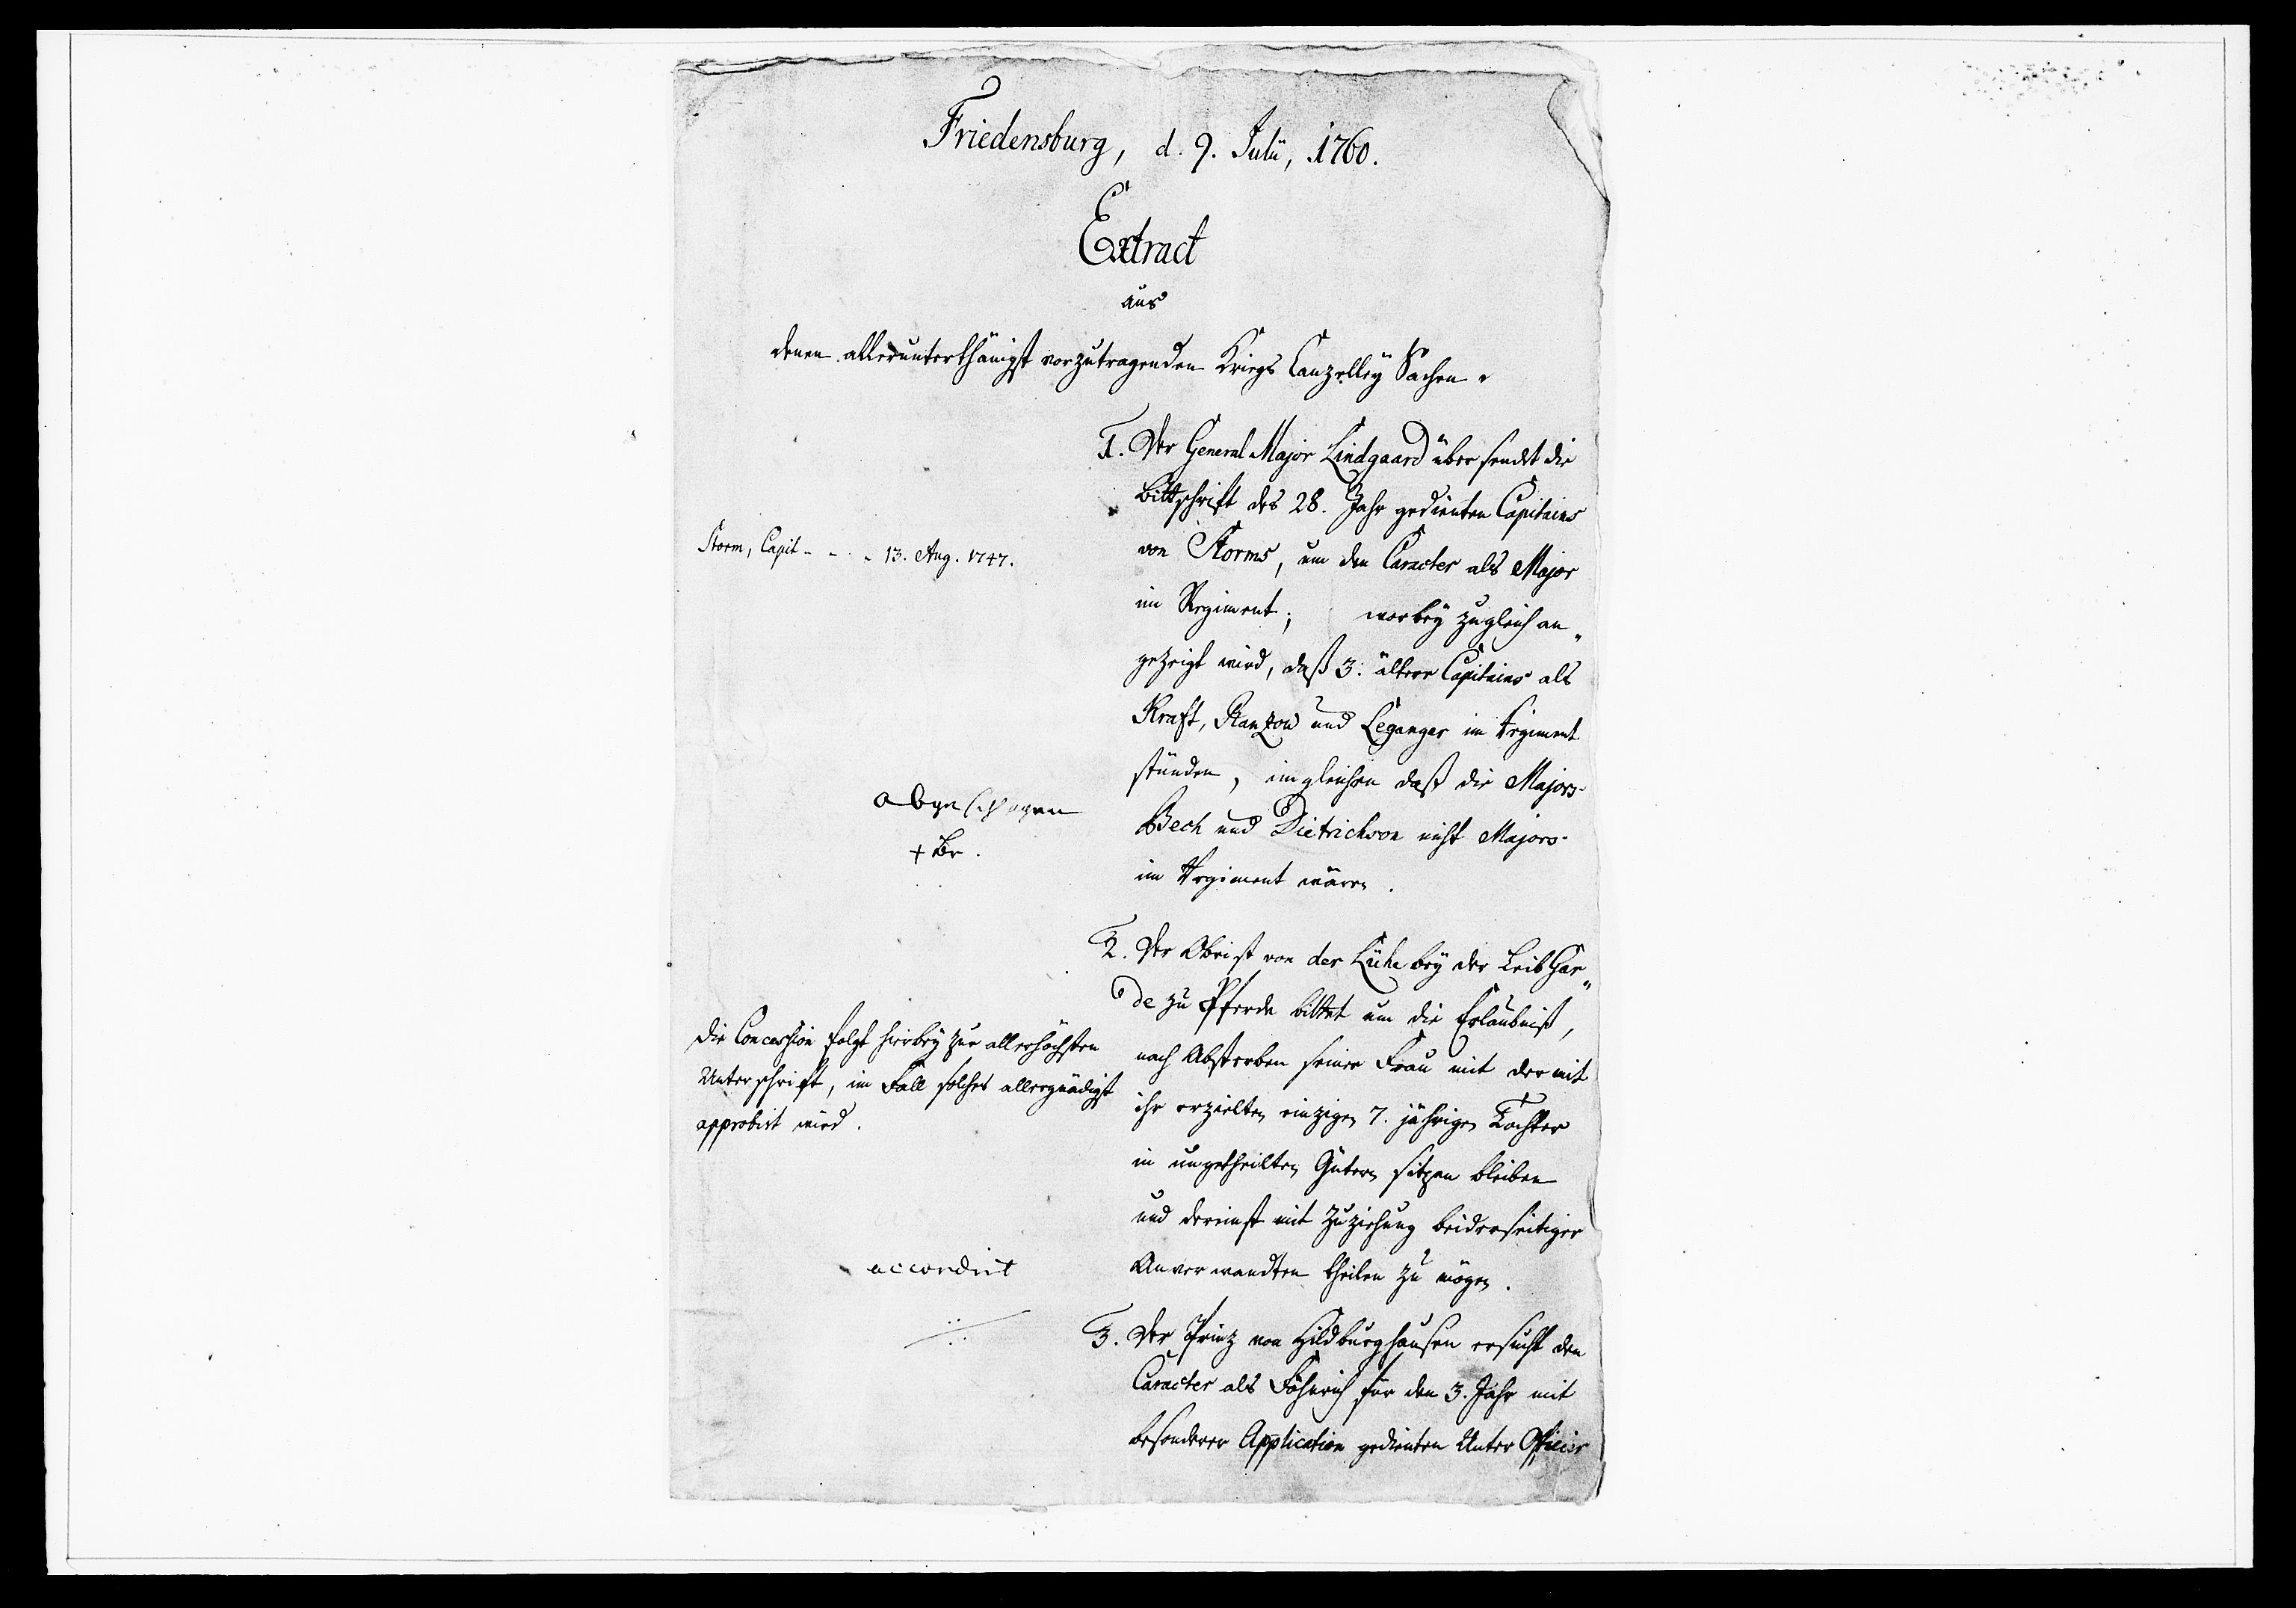 Friedensburg, d. 9. Julii, 1760.
Extract
aus
denen allerunterthänigst vorzutragenden Kriegs Canzelley Sachen.
1. Der General Major Lindgaard übersendet die
Bittschrift des 28. Jahr gedienten Capitains
von Storms, um den Caracter als Major
im Regiment; worbey zugleich an„
gezeigt wird, daß 3. ältere Capitains als
Kraft, Ranzow und Leganger im Regiment
stünden, imgleichen daß die Majors
Bech und Dietrichson nicht Majors
im Regiment wären.
Storm, Capit - - - 13. Aug. 1747.
abgeschlagen
+ Br.
2. Der Obrist von der Lühe bey der Leib Gar„
de zu Pferde bittet um die Erlaubniß,
nach Absterben seiner Frau mit der mit
ihr erzielten einzigen 7. jährigen Tochter
in ungetheilten Gütern sitzen bleiben
und dereinst mit Zuziehung beiderseitiger
Anverwandten theilen zu mögen.
Die Concession folgt hierbey zur allerhöchsten
Unterschrift, im Fall solches allergnädigst
approbirt wird.
accordirt
3. Der Prinz von Hildburghausen ersucht den
Caracter als Fähnrich für den 3. Jahr mit
besonderer Application gedienten Unter Officier